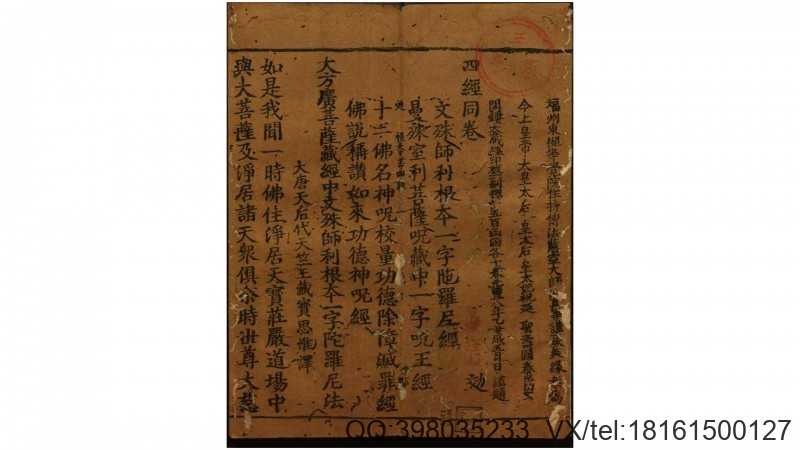 福州東禪等覺院住持傳法慧空大師
今上皇帝 太皇太后 皇太后 皇太妃祝延 聖壽國泰民安
開鏤大藏經印板 五百函 月 日謹題
四經同卷 効
文殊師利根本一字陁羅尼經
曼殊室利菩薩呪藏中一字呪王經
十二佛名神呪校量功德除障滅罪經
佛說稱讚如來功德神呪經
大方廣菩薩藏經中文殊師利根本一字陀羅尼法
大唐天后代天竺三藏寶思惟譯
如是我聞一時佛住淨居天寶莊嚴道場中
與大菩薩及淨居諸天衆俱尒時世尊大慈
QQ:398035233 VX/tel:18161500127